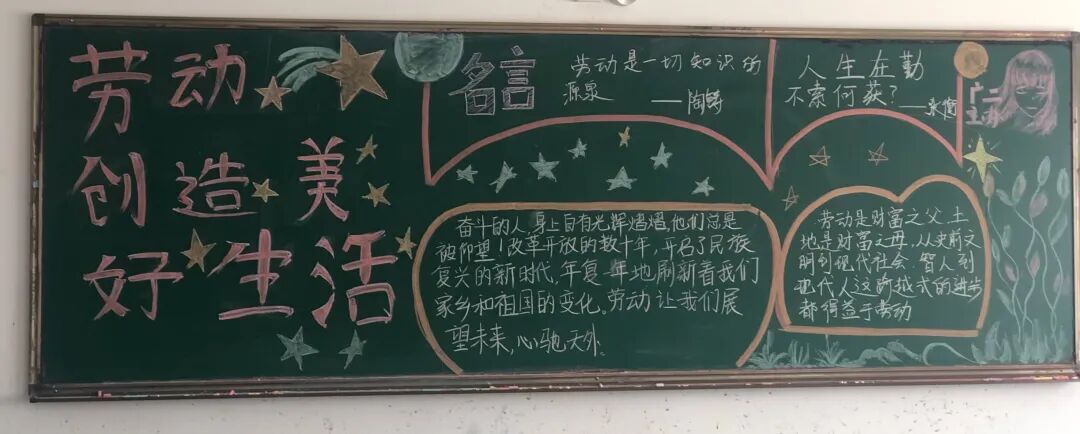 劳动
创造美
好生活
名言
劳动是一切知识的
源泉
——陶铸
人生在勤
不索何获？
——张衡
广二
主办
奋斗的人，身上自有光辉熠熠，他们总是
被仰望！改革开放的数十年，开启了民族
复兴的新时代，年复一年地刷新着我们
家乡和祖国的变化。劳动让我们展
望未来，心驰天外。
劳动是财富之父，土
地是财富之母，从史前文
明到现代社会，智人到
现代人这跨越式的进步
都得益于劳动